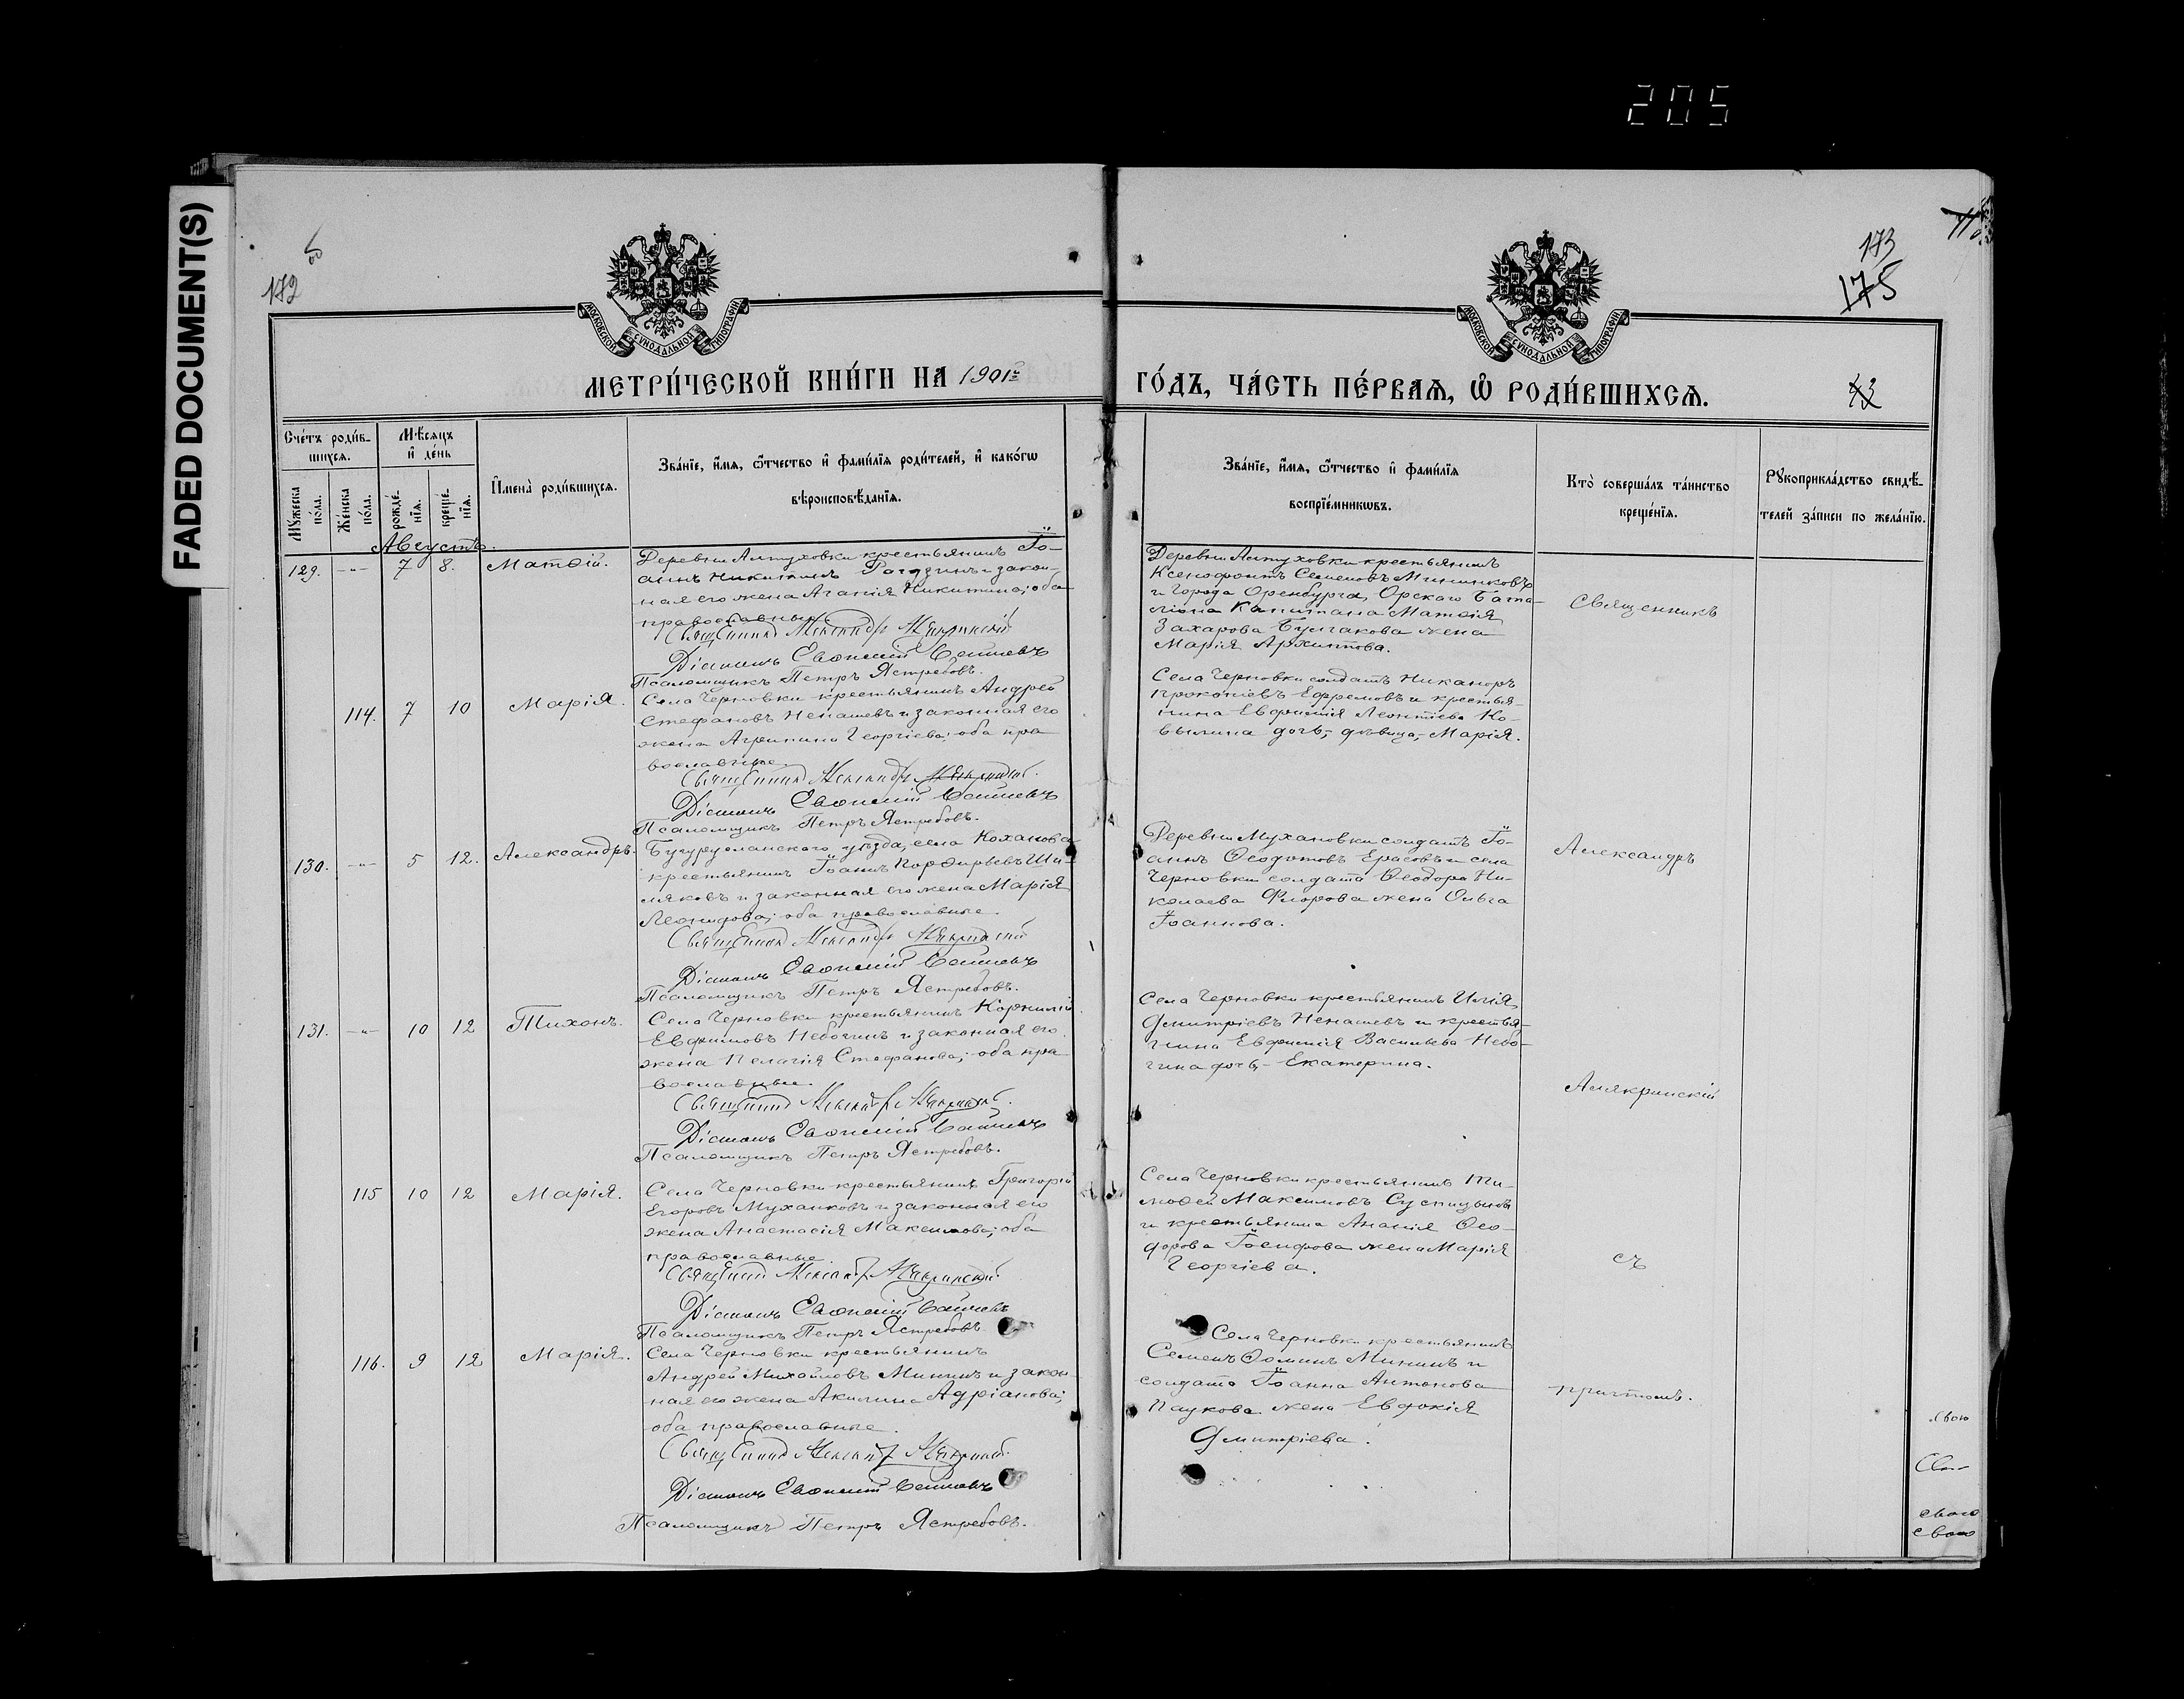 205
FADED DOCUMENT(S)
172
173
175
МОСКОВСКОЙ СѴНОДАЛЬНОЙ ТИПОГРАФІИ
МОСКОВСКОЙ СѴНОДАЛЬНОЙ ТИПОГРАФІИ
МЕТРИ́ЧЕСКОЙ КНИ́ГИ НА 1901й
ГО́ДЪ, ЧА́СТЬ ПЕ́РВАЯ, Ѡ РОДИ́ВШИХСЯ.
Сче́тъ роди́в-
шихся.
Мѣ́сяцъ
и де́нь
Мꙋжеска по́ла.
Же́нска по́ла.
рожде́нїя.
креще́нїя.
Имена̀ роди́вшихся.
Зва́нїе, и́мя, ѻ҆́тчество и фами́лїя роди́телей, и како́гѡ
вѣроисповѣ́данїя.
Зва́нїе, и́мя, ѻ҆́тчество и фами́лїя
воспрїе́мникѡвъ.
Кто̀ соверша́лъ та́инство
креще́нїя.
Рꙋкоприкла́дство свидѣ́-
телей за́писи по жела́нїю.
Августъ.
129. -"- 7 8. Матѳій.
Деревни Алтуховки крестьянинъ Іо-
аннъ Никитинъ Рагузинъ и закон-
ная его жена Агапія Никитина; оба
православные.
Священникъ Александръ Алякринскій
Діаконъ Евѳимій
Псаломщикъ Петръ Ястребовъ.
Деревни Алтуховки крестьянинъ
Ксенофонтъ Семеновъ Мининковъ
и города Оренбурга, Орскаго Бата-
ліона Капитана Матѳія
Захарова Булгакова жена
Марія Архипова.
Священникъ
114. 7 10 Марія.
Села Черновки крестьянинъ Андрей
Стефановъ Ненашевъ и законная его
жена Агрипина Георгіева; оба пра-
вославные.
Священникъ Александръ Алякринскій.
Діаконъ Евѳимій
Псаломщикъ Петръ Ястребовъ.
Села Черновки солдатъ Никаноръ
Прокопіевъ Ефремовъ и крестья-
нина Евфимія Леонтіева Ко-
вылина дочь, дѣвица, Марія.
130. -"- 5 12. Александръ.
Бугурусланскаго уѣзда, села Коханова
крестьянинъ Іоаннъ Порфирьевъ Ши-
ляковъ и законная его жена Марія
Леонидова; оба православные.
Священникъ Александръ Алякринскій
Діаконъ Евѳимій
Псаломщикъ Петръ Ястребовъ.
Деревни Мухановки солдатъ Іо-
аннъ Ѳеодотовъ Ерасовъ и села
Черновки солдата Ѳеодора Ни-
колаева Флорова жена Ольга
Іоаннова.
Александръ
131. -"- 10 12 Тихонъ.
Села Черновки крестьянинъ Корнилій
Евфимовъ Небогинъ и законная его
жена Пелагія Стефанова; оба пра-
вославные.
Священникъ Александръ Алякринскій.
Діаконъ Евѳимій
Псаломщикъ Петръ Ястребовъ.
Села Черновки крестьянинъ Илія
Дмитріевъ Ненашевъ и крестья-
нина Евфимія Васильева Небо-
гина дочь - Екатерина.
Алякринскій
115 10 12 Марія.
Села Черновки крестьянинъ Григорій
Егоровъ Муханковъ и законная его
жена Анастасія Максимова; оба
православные
Священникъ Александръ Алякринскій
Діаконъ Евѳимій
Псаломщикъ Петръ Ястребовъ
Села Черновки крестьянинъ Ти-
моѳей Максимовъ Суспицынъ
и крестьянина Ананія Ѳео-
дорова Іосифова жена Марія
Георгіева.
съ
116. 9 12 Марія.
Села Черновки крестьянинъ
Андрей Михайловъ Мининъ и закон-
ная его жена Акилина Адріанова;
оба православные.
Священникъ Александръ Алякринскій.
Діаконъ Евѳимій
Псаломщикъ Петръ Ястребовъ.
Села Черновки крестьянинъ
Семенъ Ѳоминъ Мининъ и
солдата Іоанна Антонова
Паукова жена Евдокія
Дмитріева.
причтомъ.